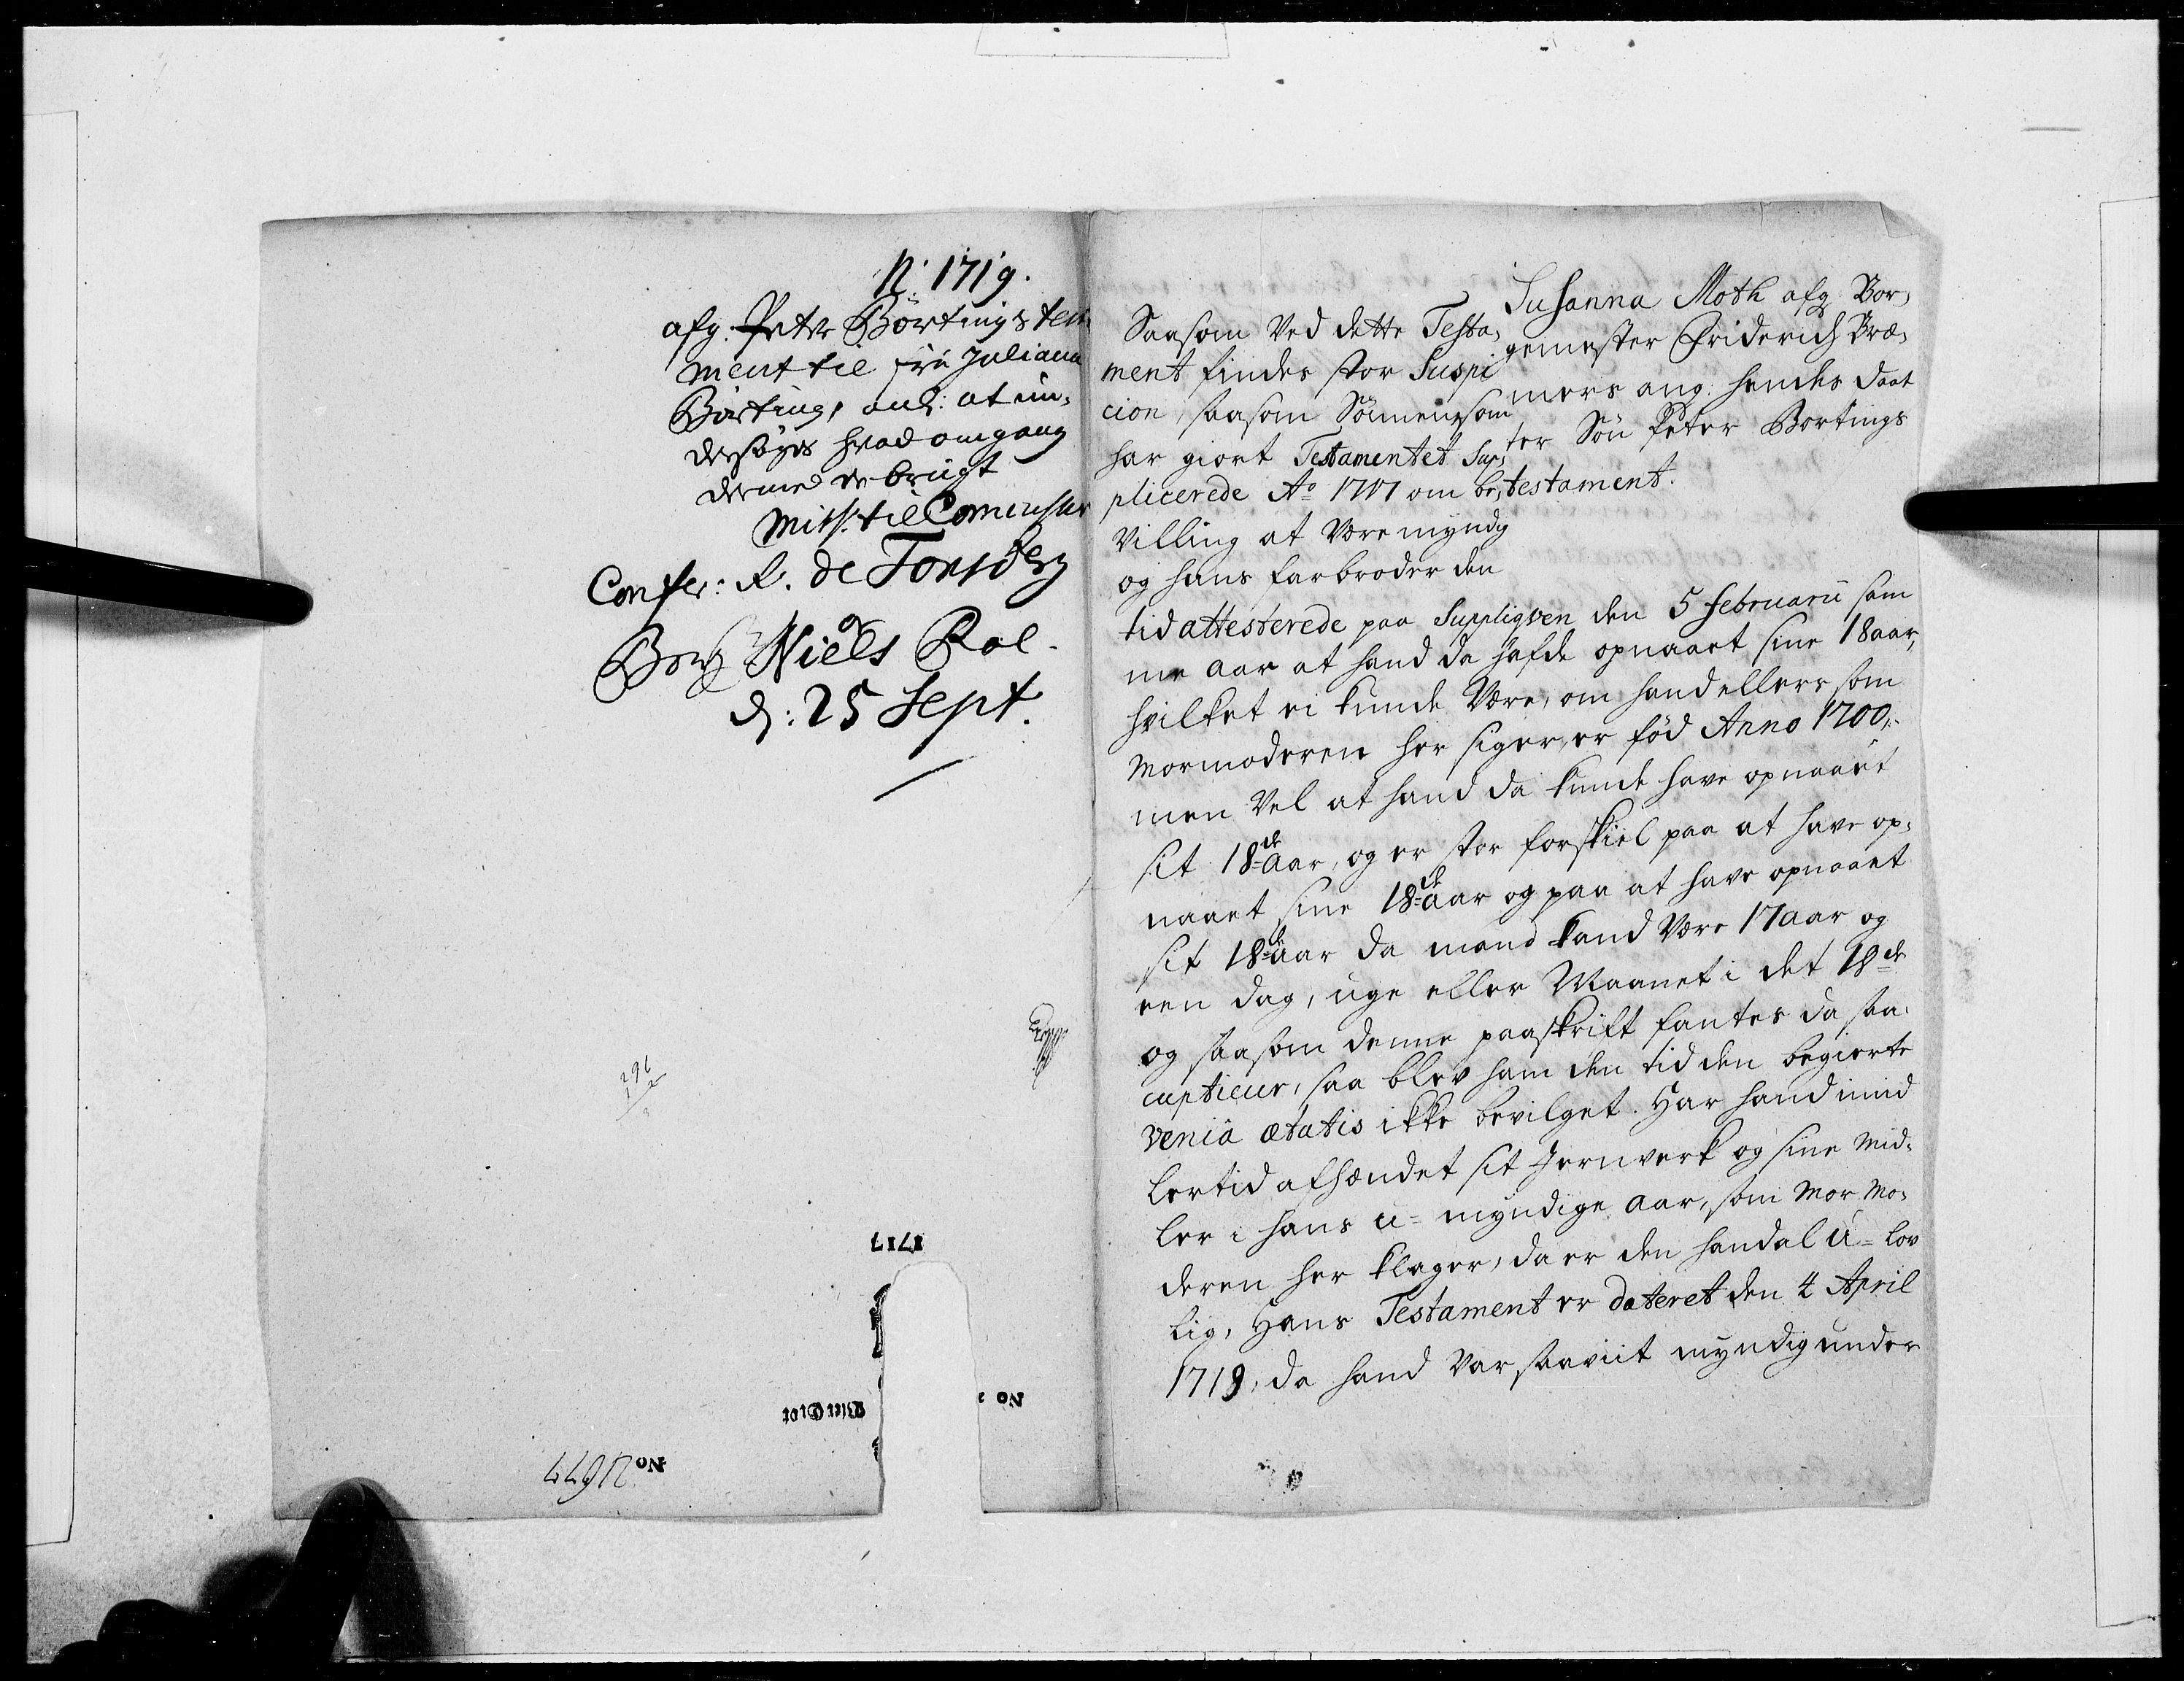 N: 1719.
afg. Peter Börtings testa
ment til fru Juliana
Börting, anl: at un-
dersøges hvad omgang
dermed er brugt
Miss: til Commissar
Confer: R. de Tonsberg
og
Borg Niels Roe.
d: 25 Sept.
296
1717
No
No 21677
Susanna Moth afg. Bor-
gemester Friderich Bræ-
mers ang. hendes daat
ter Søn Peter Bortings
testament.
Saasom ved dette Testa-
ment findes stor Suspi
cion, saasom Sönnen som
har giort Testamentet Sup-
plicerede Ao 1717 om be-
villing at være myndig
og hans farbroder den
tid attesterede paa Suppliqven den 5 Februarii sam
me aar at hand da hafde opnaaet sine 18 aar,
hvilket ei kunde være, om hand ellers som
Mormoderen her siger, er fød Anno 1700,
men vel at hand da kunde have opnaaet
sit 18de aar, og er stor forskiel paa at have op-
naaet sine 18de aar og paa at have opnaaet
sit 18de aar da mand kand være 17 aar og
een dag, uge eller Maanet i det 18de
og saasom denne paaskrift fantes da saa
captieur, saa blev ham den tid den begierte
venia ætatis ikke bevilget. Har hand imid
lertid afhændet sit Jernverk og sine mid-
ler i hans u-myndige aar, som Mor mo-
deren her klager, da er den handel u-lov
lig, Hans Testament er dateret den 4 April
1719, da hand var saaviit myndig under